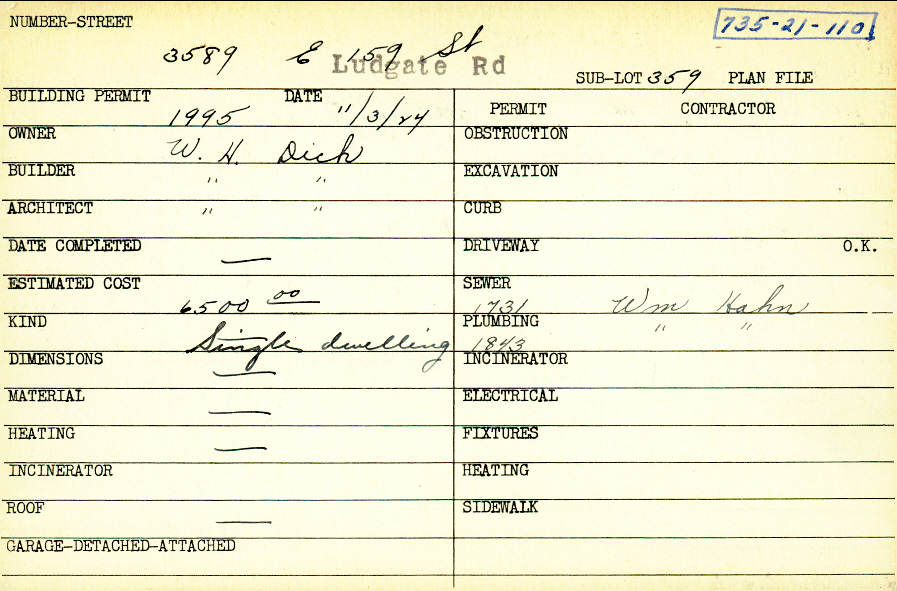 NUMBER-STREET 735-21-110
3589 E 159 St
Ludgate Rd
SUB-LOT 359 PLAN FILE
BUILDING PERMIT 1995 DATE 11/3/24
PERMIT CONTRACTOR
OWNER W. H. Dick
OBSTRUCTION
BUILDER " "
EXCAVATION
ARCHITECT " "
CURB
DATE COMPLETED —
DRIVEWAY O.K.
ESTIMATED COST 6500 00
SEWER 1731 Wm Hahn
KIND Single dwelling
PLUMBING 1843 " "
DIMENSIONS —
INCINERATOR
MATERIAL —
ELECTRICAL
HEATING —
FIXTURES
INCINERATOR
HEATING
ROOF —
SIDEWALK
GARAGE-DETACHED-ATTACHED